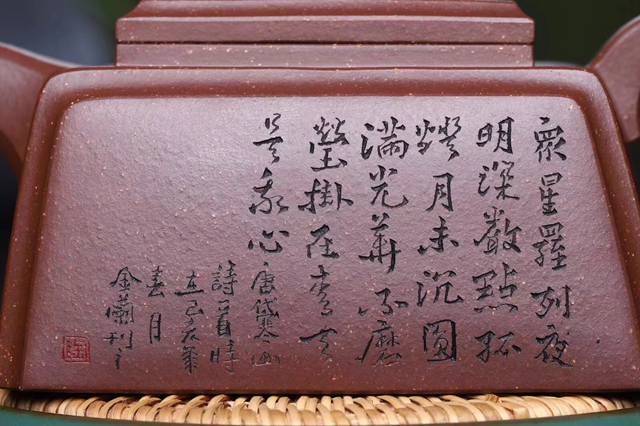 眾星羅列夜
明深巖點孤
燈月未沉圓
滿光華不磨
瑩掛在青天
是我心唐代寒山
詩一首時
在己亥年
春月
金蘭刊